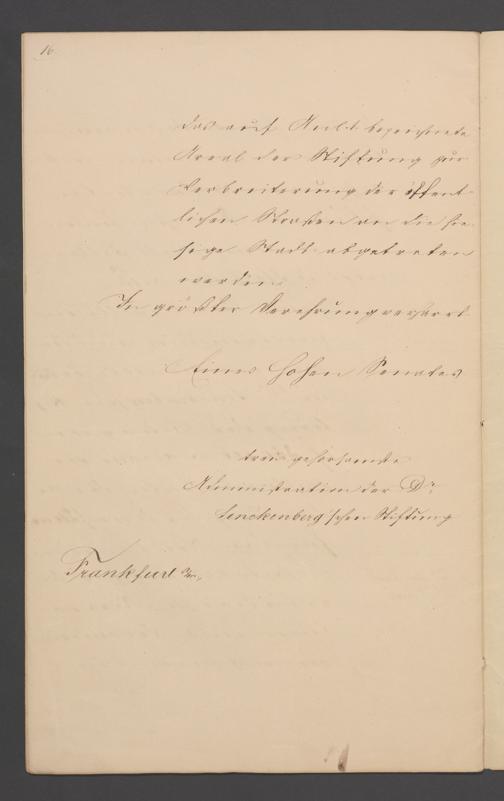 16
das auf Anl. 1 bezeichnete
Areal der Stiftung zur
Verbreiterung der öffent-
lichen Straßen an die hie-
sige Stadt abgetreten
werden.
In größter Verehrung verharrt
Eines Hohen Senates
treu gehorsamste
Administration der Dr.
Senckenberg'schen Stiftung
Frankfurt a/m.